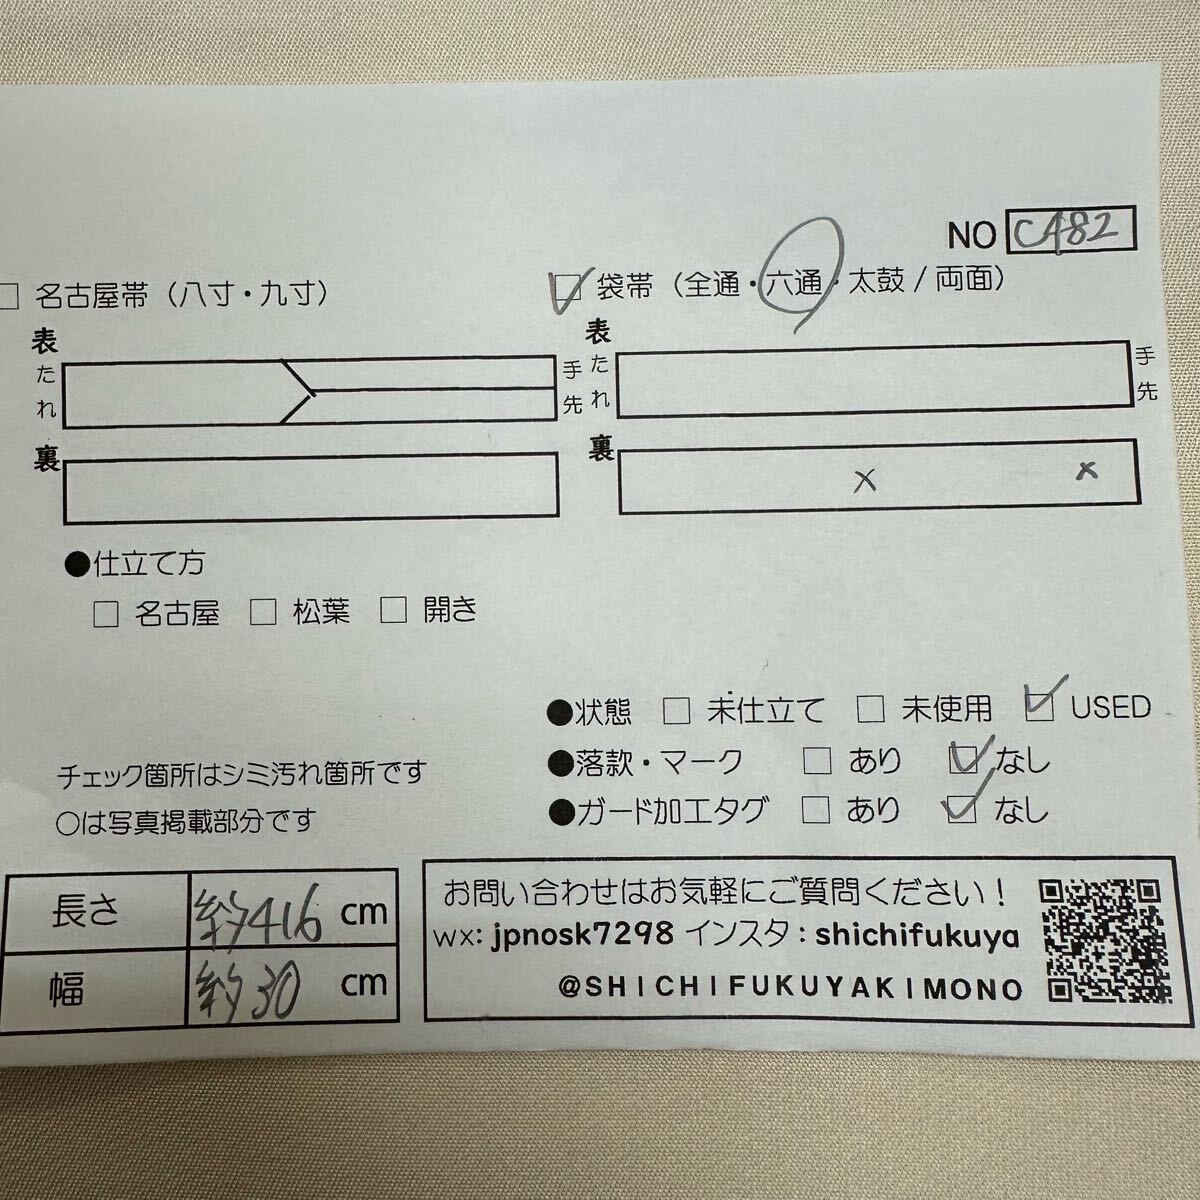 NO CA82
□ 名古屋帯（八寸・九寸）
☑ 袋帯（全通・六通・太鼓 / 両面）
表
たれ
手先
裏
表
たれ
手先
裏
x x
●仕立て方
□ 名古屋 □ 松葉 □ 開き
●状態 □ 未仕立て □ 未使用 ☑ USED
●落款・マーク □ あり ☑ なし
●ガード加工タグ □ あり ☑ なし
チェック箇所はシミ汚れ箇所です
○は写真掲載部分です
長さ 約416 cm
幅 約30 cm
お問い合わせはお気軽にご質問ください！
wx: jpnosk7298 インスタ : shichifukuya
@SHICHIFUKUYAKIMONO